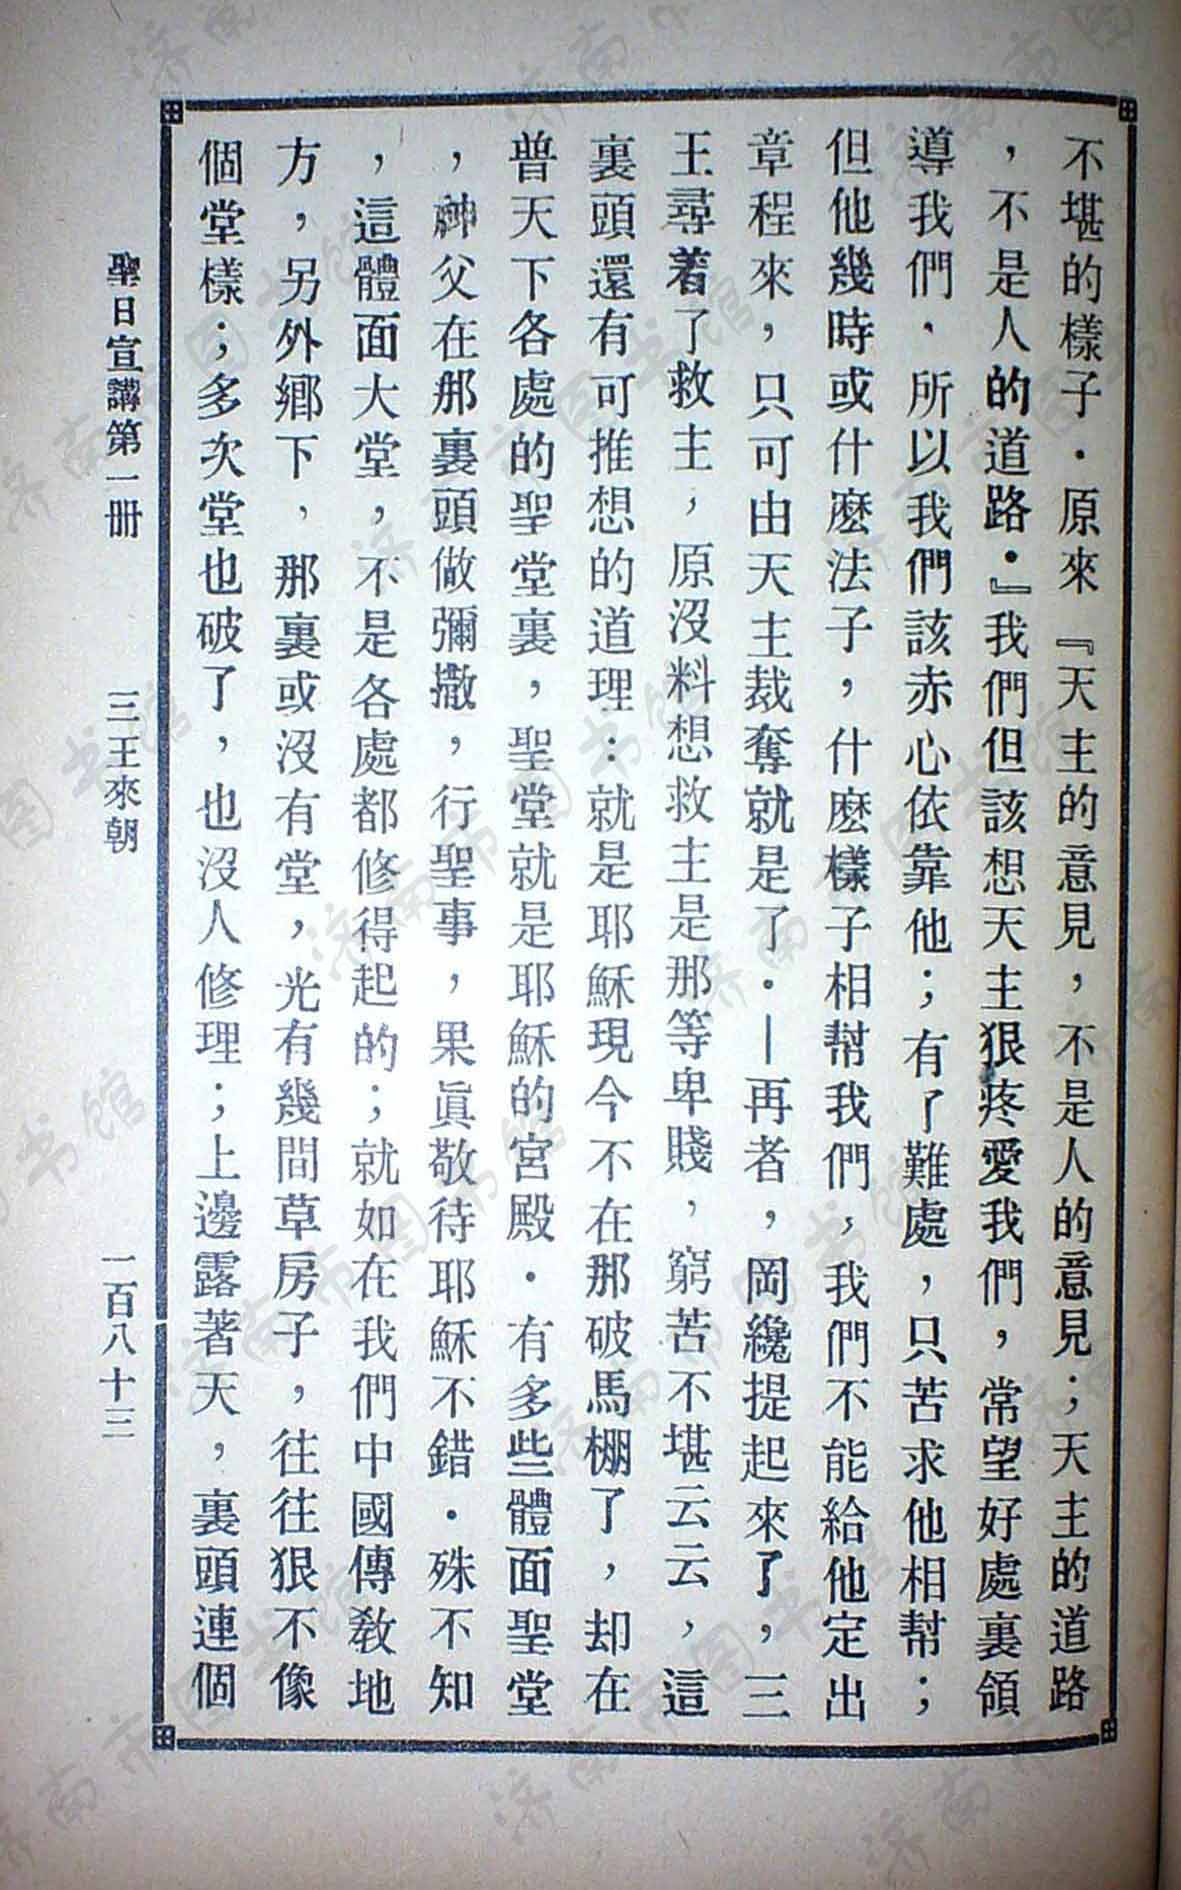 不堪的樣子．原來『天主的意見，不是人的意見；天主的道路
，不是人的道路．』我們但該想天主狠疼愛我們，常望好處裏領
導我們．所以我們該赤心依靠他；有了難處，只苦求他相幫；
但他幾時或什麽法子，什麽樣子相幫我們，我們不能給他定出
章程來，只可由天主裁奪就是了．—再者，岡纔提起來了，三
王尋着了救主，原沒料想救主是那等卑賤，窮苦不堪云云，這
裏頭還有可推想的道理：就是耶穌現今不在那破馬棚了，却在
普天下各處的聖堂裏，聖堂就是耶穌的宮殿．有多些體面聖堂
，神父在那裏頭做彌撒，行聖事，果眞敬待耶穌不錯．殊不知
，這體面大堂，不是各處都修得起的；就如在我們中國傳教地
方，另外鄉下，那裏或沒有堂，光有幾間草房子，往往狠不像
個堂樣；多次堂也破了，也沒人修理；上邊露著天，裏頭連個
聖日宣講第一册　三王來朝　一百八十三
济南市图书馆